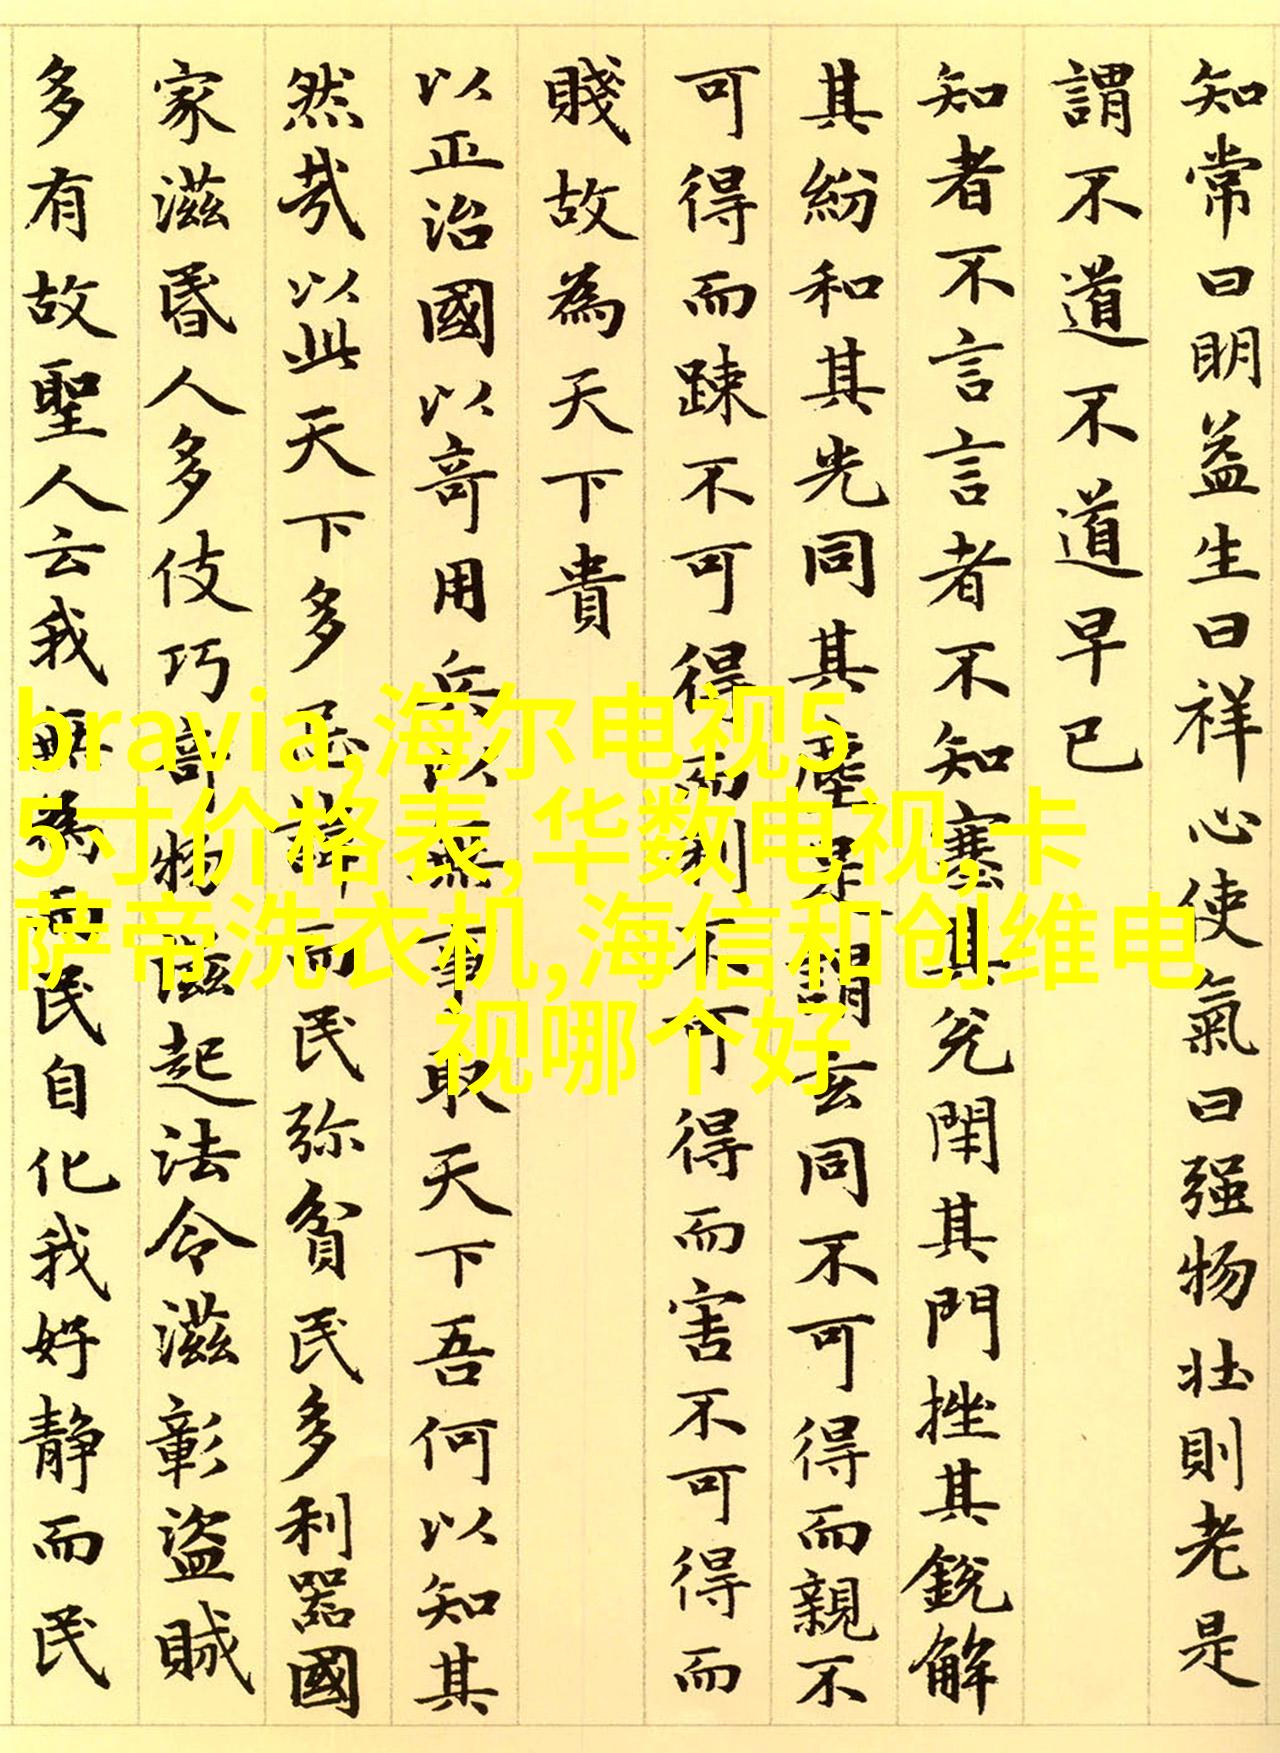 知常曰明益生曰祥心使氣曰强物壯則老是
謂不道不道早已
知者不言言者不知塞其兌閉其門挫其銳解
其紛和其光同其塵是謂玄同不可得而親不
可得而踈不可得而利不可得而害不可得而
賤故為天下貴
以正治國以奇用兵以無事取天下吾何以知其
然哉以此天下多忌諱而民弥貧民多利器國
家滋昏人多伎巧奇物滋起法令滋彰盜賊
多有故聖人云我無為而民自化我好静而民
bravia,海尔电视5
5寸价格表,华数电视,卡
萨帝洗衣机,海信和创维电
视哪个好